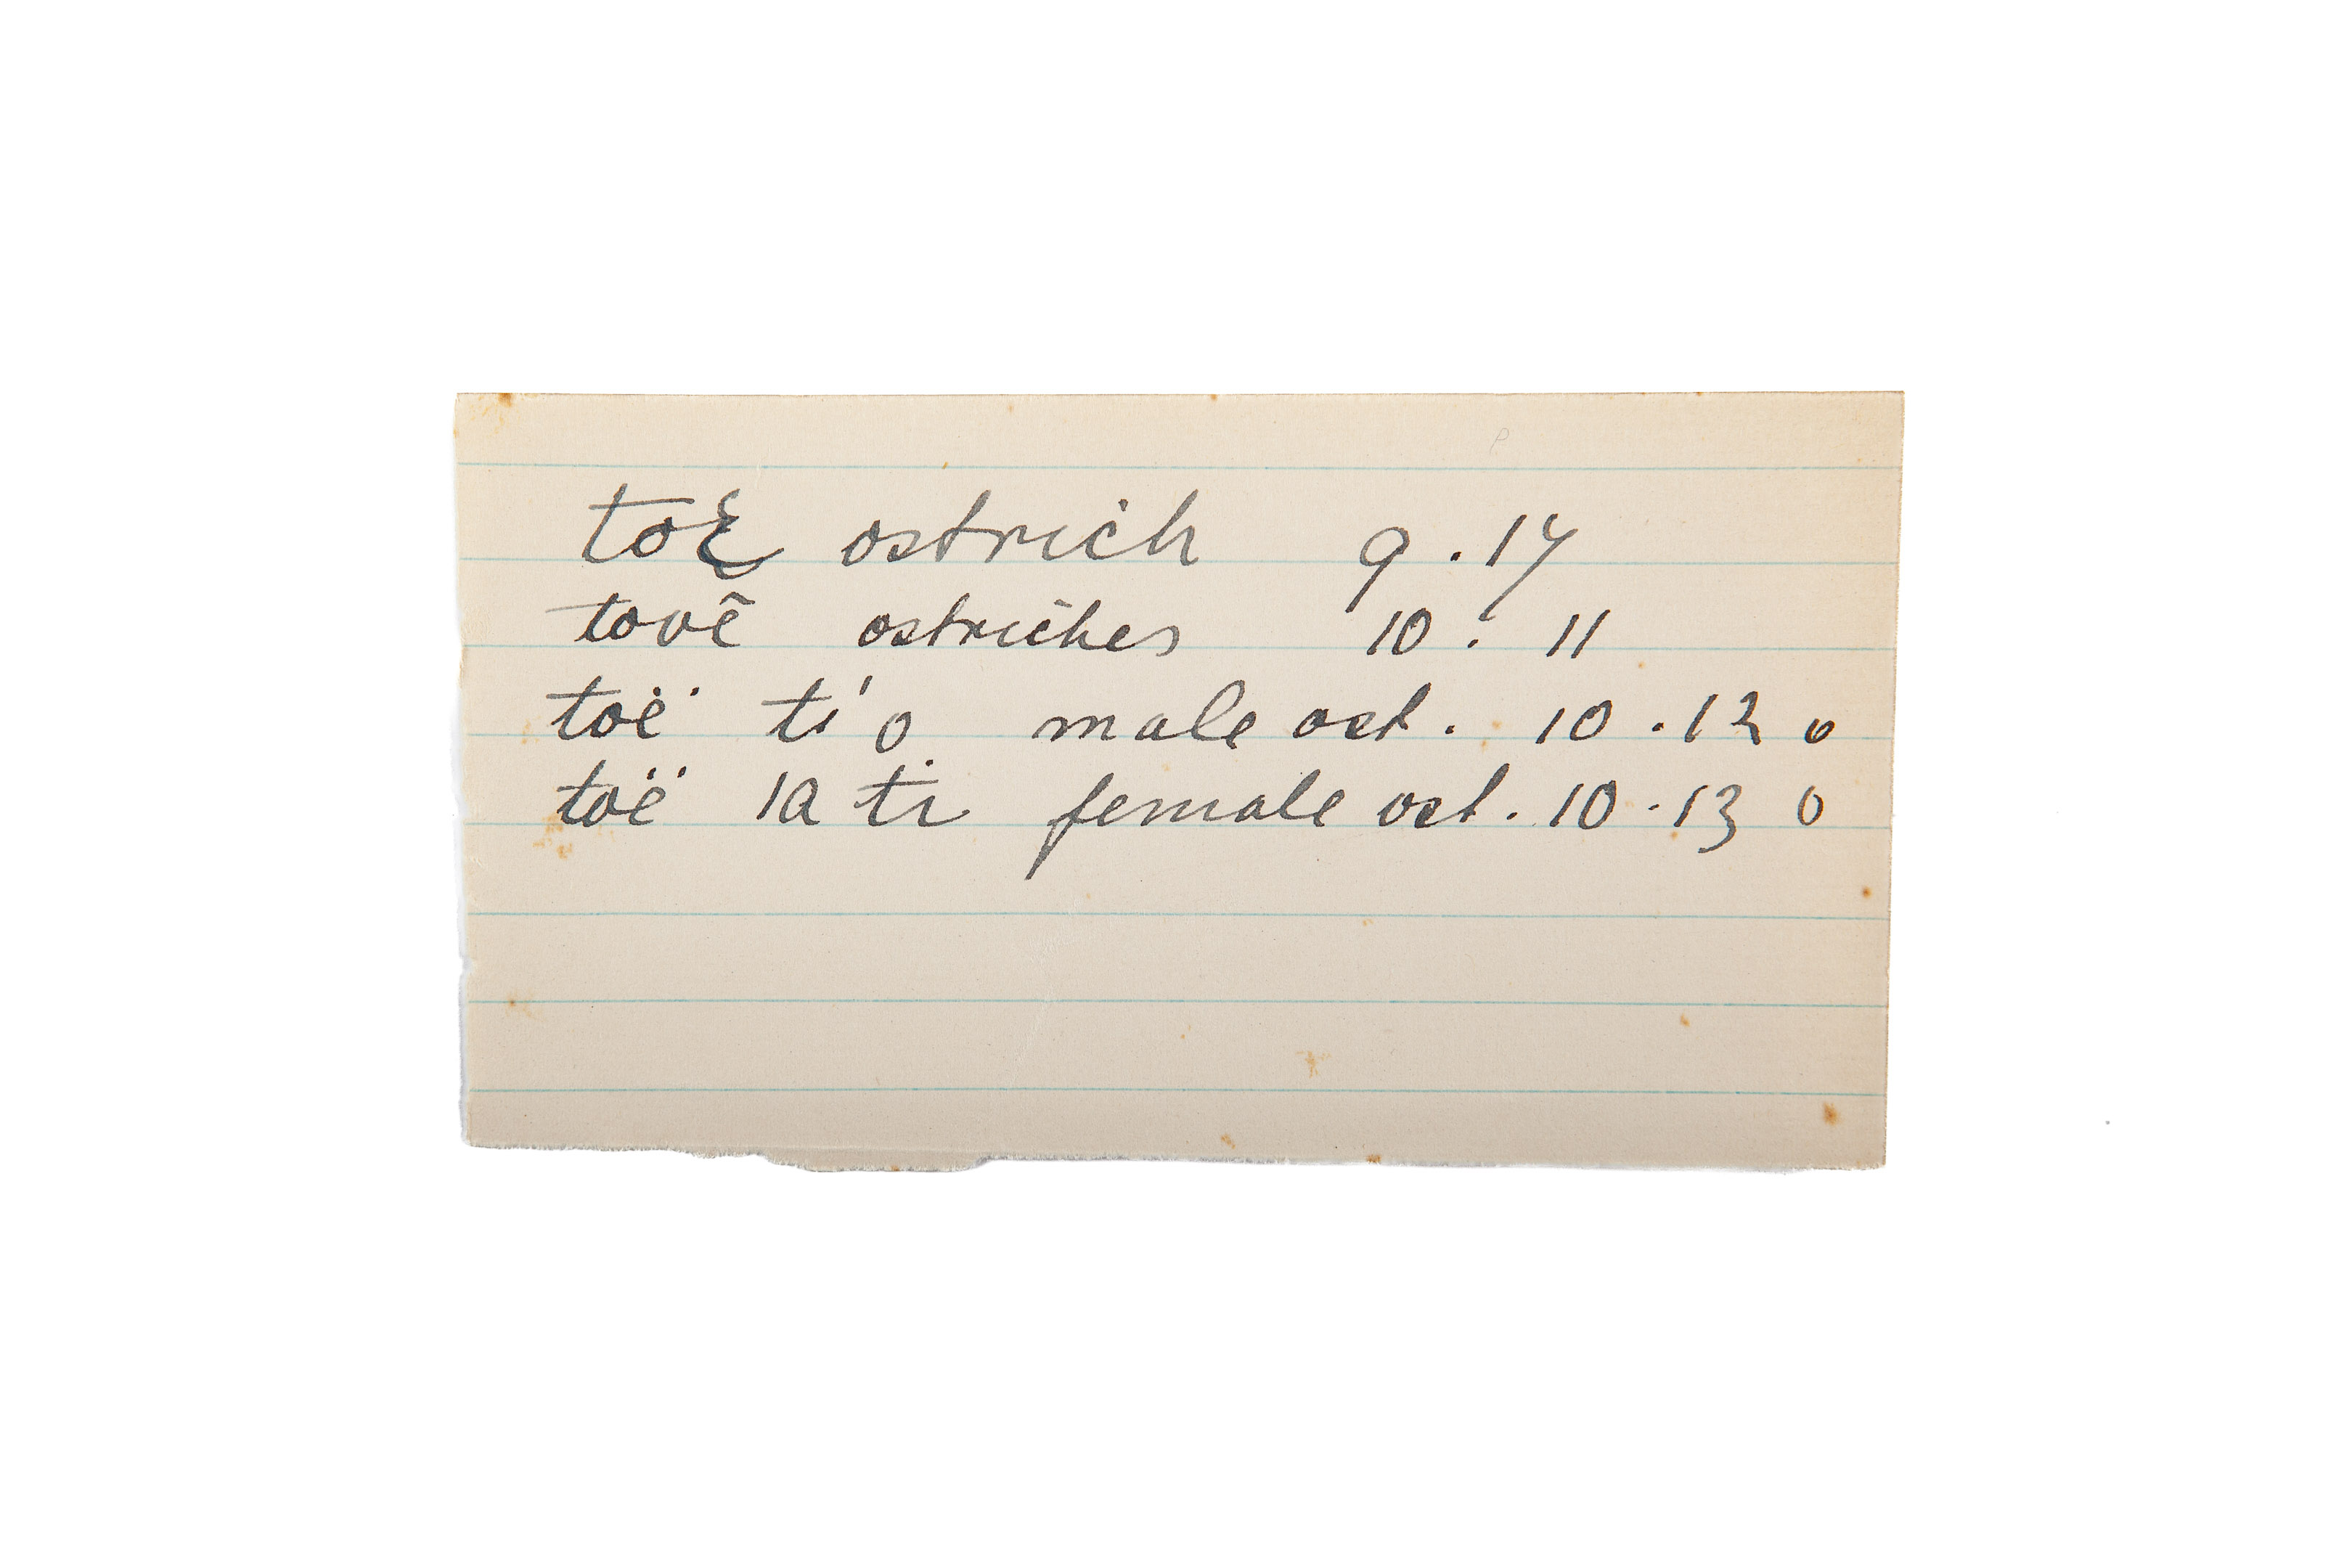 toë ostrich 9.14
tovē ostriches 10. 11
toë ti'o male ost. 10.12 o
toë ıa ti female ost. 10.13 o